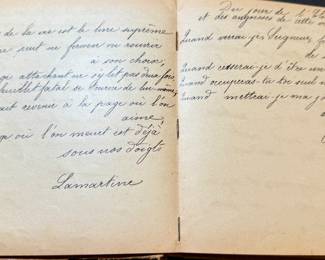 de la vie est le livre suprême
ne peut ni fermer ni rouvrir
à son choix,
attachant ne s'y lit pas deux fois
feuillet fatal se tourne de lui-même,
revenir à la page où l'on
aime,
où l'on meurt est déjà
sous nos doigts
Lamartine
Du jour de
et des angoisses de cette
Quand verrai-je, Seigneur,
de
Quand cesserai-je d'être
Quand occuperas-tu toi seul
Quand mettrai-je ma